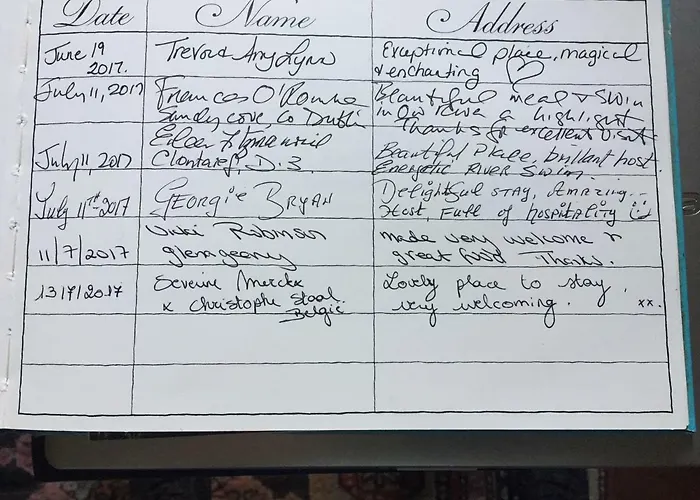 Date Name Address
June 19 2017. Trevor & Amy Lynn Exceptional place, magical
& enchanting ♡
July 11, 2017 Frances O'Rourke Beautiful meal & swim
Sandycove Co Dublin in low River a highlight
Thanks for excellent visit
July 11, 2017 Eileen Fitzmaurice Beautiful Place, brilliant host.
Clontarf, D.3. Energetic River Swim.
July 11th 2017 Georgie Bryan Delightful stay, Amazing...
Host, Full of hospitality ☺
11/7/2017 Vicki Robinson made very welcome &
glenageary great food Thanks.
13/7/2017 Severine Merckx Lovely place to stay,
x Christophe Staal. very welcoming. xx.
Belgie